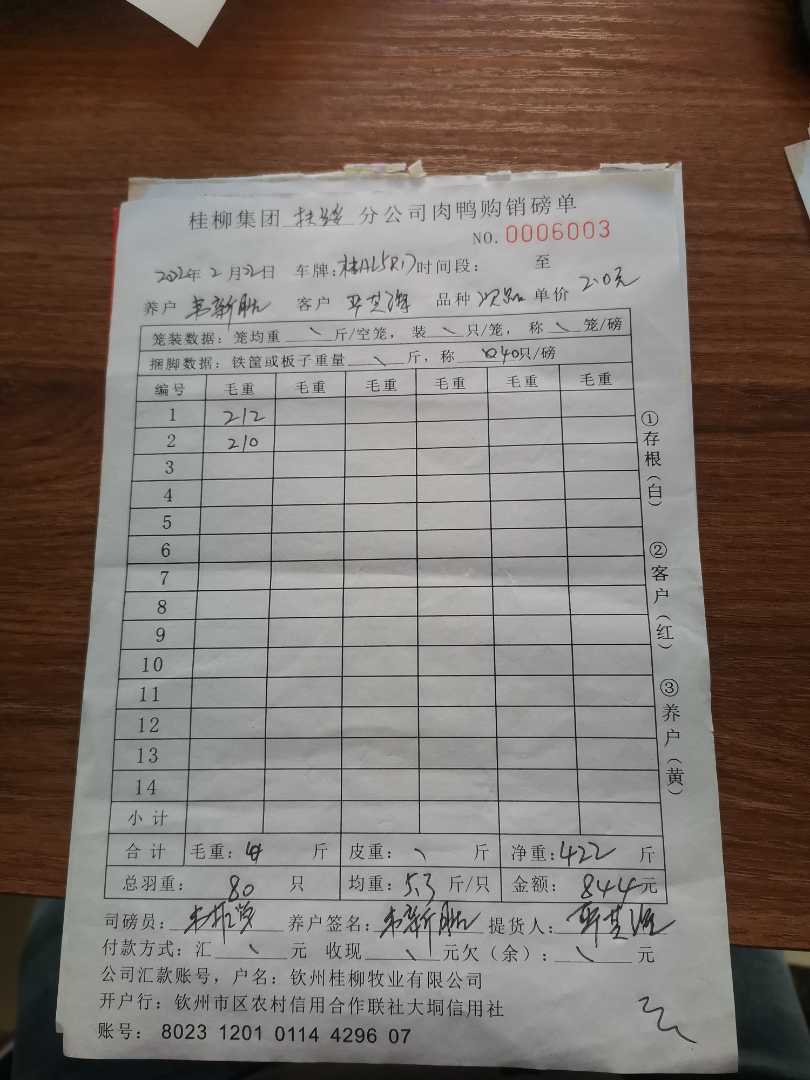 桂柳集团扶绥分公司肉鸭购销磅单
NO. 0006003
2022年2月22日 车牌: 桂AL5R17 时间段: 至
养户 韦新 客户 品种 次品 单价 2.0元
笼装数据: 笼均重 \ 斤/空笼, 装 \ 只/笼, 称 \ 笼/磅
捆脚数据: 铁筐或板子重量 \ 斤, 称 40只/磅
编号 毛重 毛重 毛重 毛重 毛重 毛重
1 212
2 210
3
4
5
6
7
8
9
10
11
12
13
14
小计
合计 毛重: 斤 皮重: \ 斤 净重: 422 斤
总羽重: 80 只 均重: 5.3 斤/只 金额: 844元
司磅员: 养户签名: 韦新 提货人:
付款方式: 汇 \ 元 收现 \ 元欠（余）: \ 元
公司汇款账号, 户名: 钦州桂柳牧业有限公司
开户行: 钦州市区农村信用合作联社大垌信用社
账号: 8023 1201 0114 4296 07
①存根（白）
②客户（红）
③养户（黄）